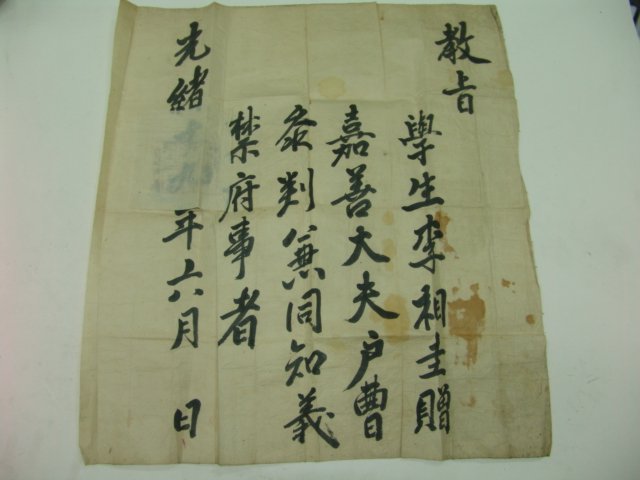 教旨
學生李相圭贈
嘉善大夫户曹
叅判兼同知義
禁府事者
光緒十九年六月 日